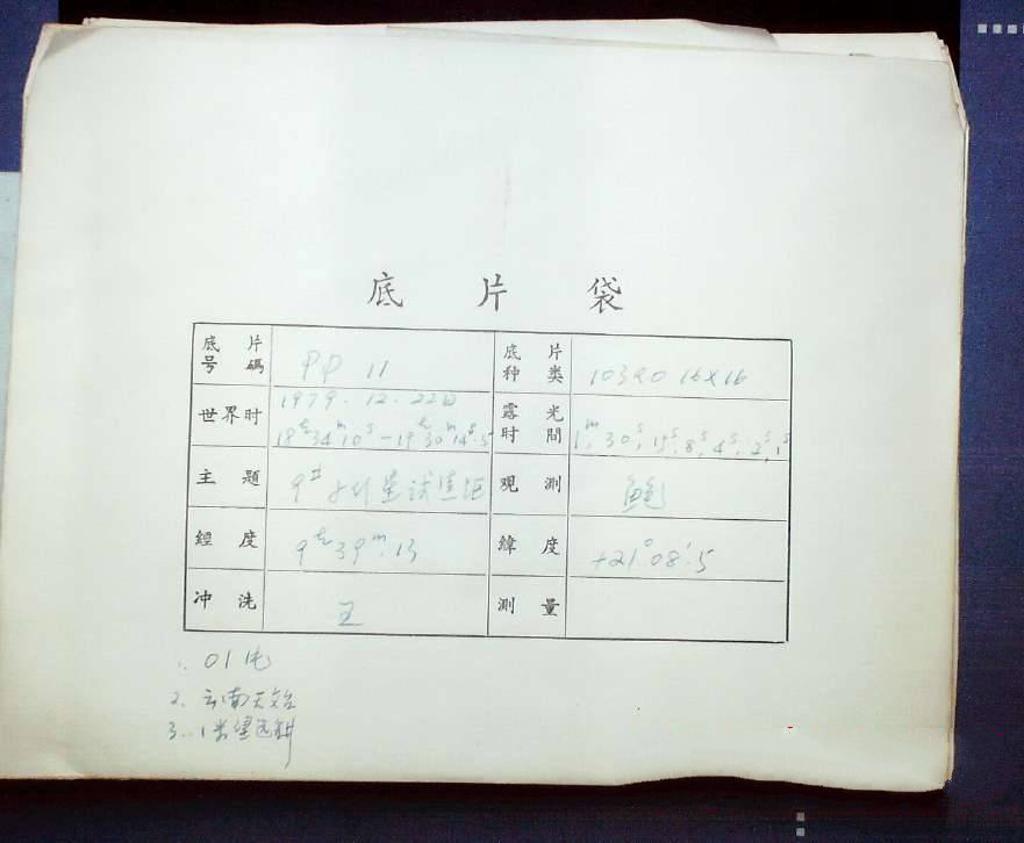 底片袋
底片号碼 PP 11 底片种类 103aO 16×16
世界时 1979.12.22日 18h34m10s-19h30m14s.5 露光时間 1m, 30s, 15s, 8s, 4s, 2s, 1s
主題 9等 观測 鲍
經度 9h39m.13 緯度 +21°08′.5
冲洗 王 測量
1. 01乇
2. 云南天文台
3. 1米望远鏡